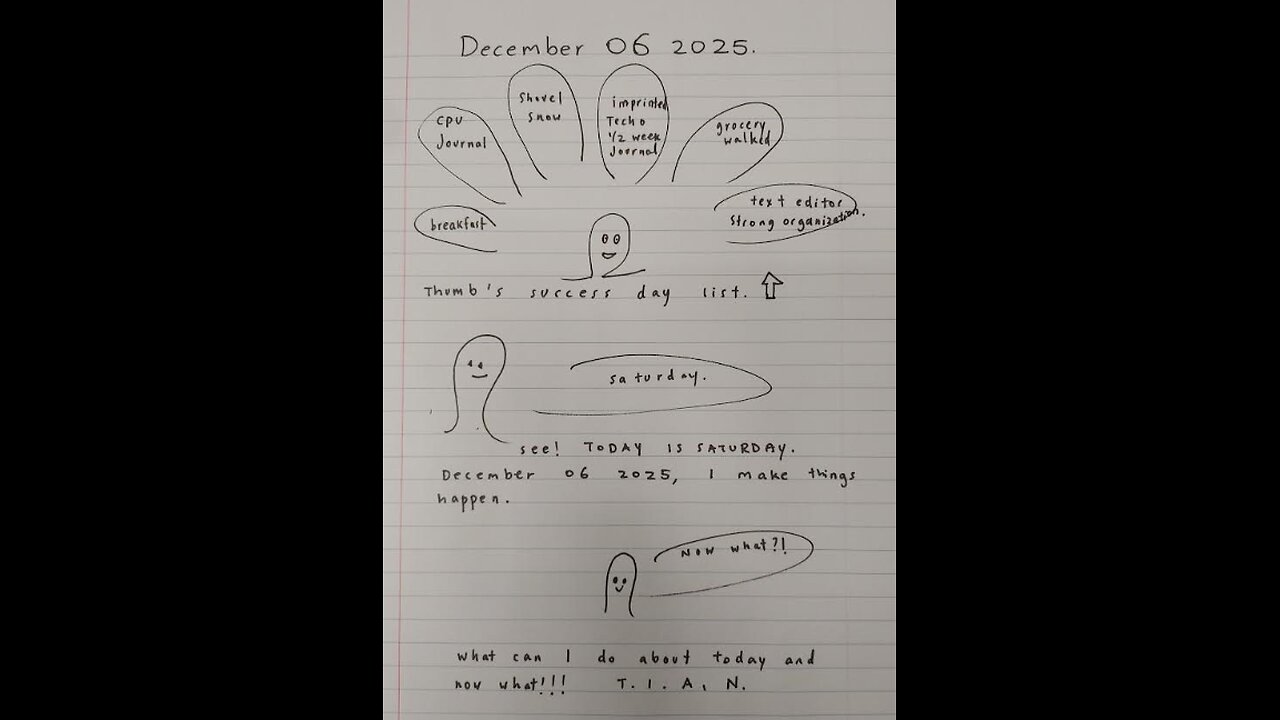 December 06 2025.
cpu
Journal
shovel
snow
imprinted
Techo
1/2 week
Journal
grocery
walked
breakfast
text editor
strong organization.
Thumb's success day list.
saturday.
see! TODAY IS SATURDAY.
December 06 2025, I make things
happen.
Now what?!
what can I do about today and
now what!!! T. I. A. N.